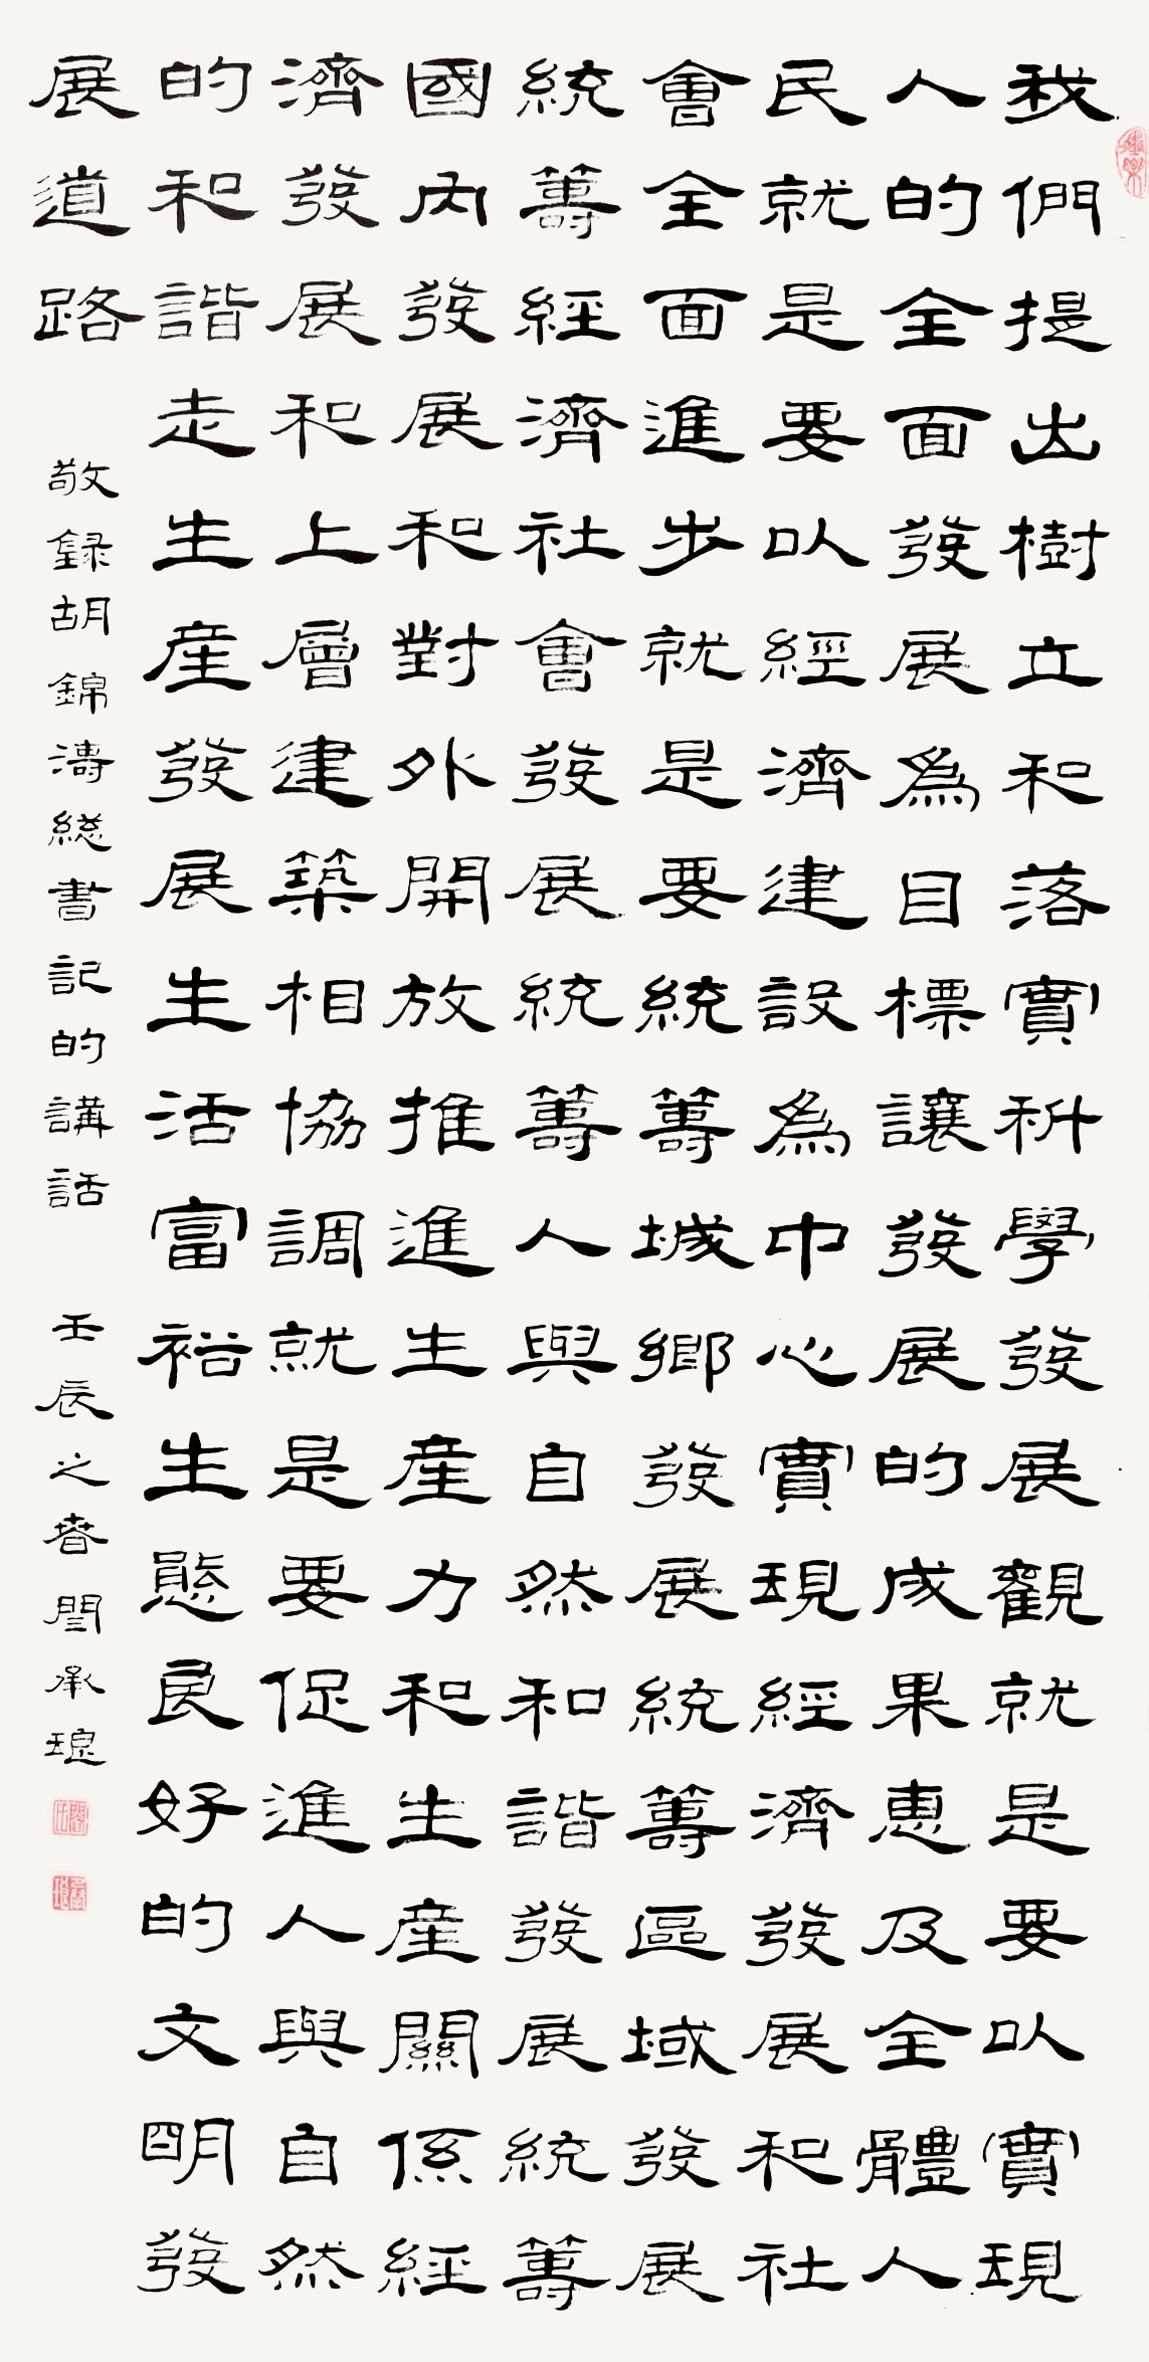 我們提出樹立和落實科學發展觀就是要以實現
人的全面發展為目標讓發展的成果惠及全體人
民就是要以經濟建設為中心實現經濟發展和社
會全面進步就是要統籌城鄉發展統籌區域發展
統籌經濟社會發展統籌人與自然和諧發展統籌
國內發展和對外開放推進生產力和生產關係經
濟發展和上層建築相協調就是要促進人與自然
的和諧走生產發展生活富裕生態良好的文明發
展道路
敬録胡錦濤總書記的講話
壬辰之春閆承琅